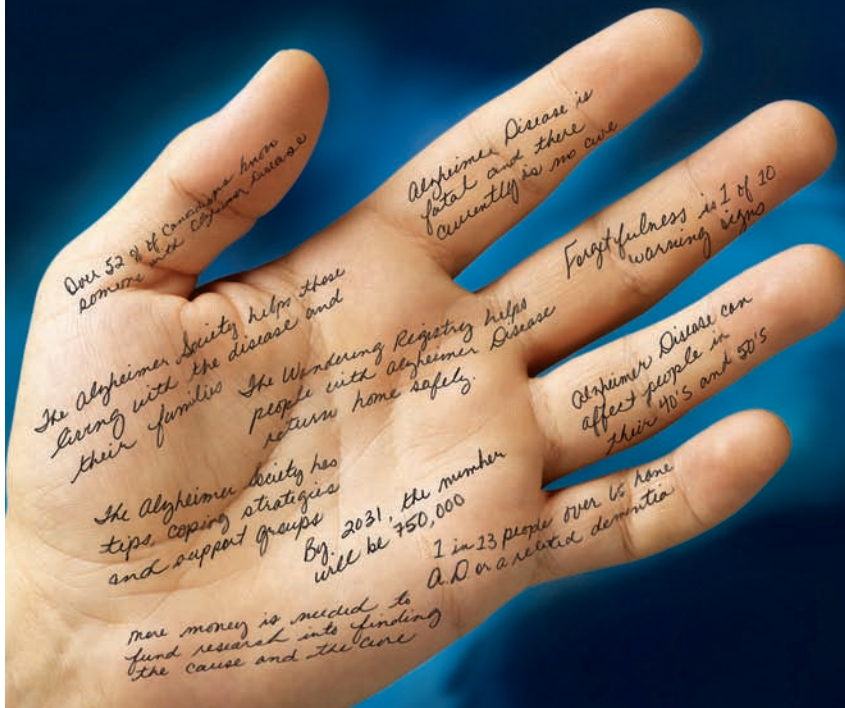 Over 52 % of Canadians know
someone with Alzheimer Disease
Alzheimer Disease is
fatal and there
currently is no cure
Forgetfulness is 1 of 10
warning signs
Alzheimer Disease can
affect people in
their 40's and 50's
1 in 13 people over 65 have
A.D. or a related dementia
The Alzheimer Society helps those
living with the disease and
their families
The Wandering Registry helps
people with Alzheimer Disease
return home safely.
The Alzheimer Society has
tips, coping strategies
and support groups
By 2031, the number
will be 750,000
more money is needed to
fund research into finding
the cause and the cure